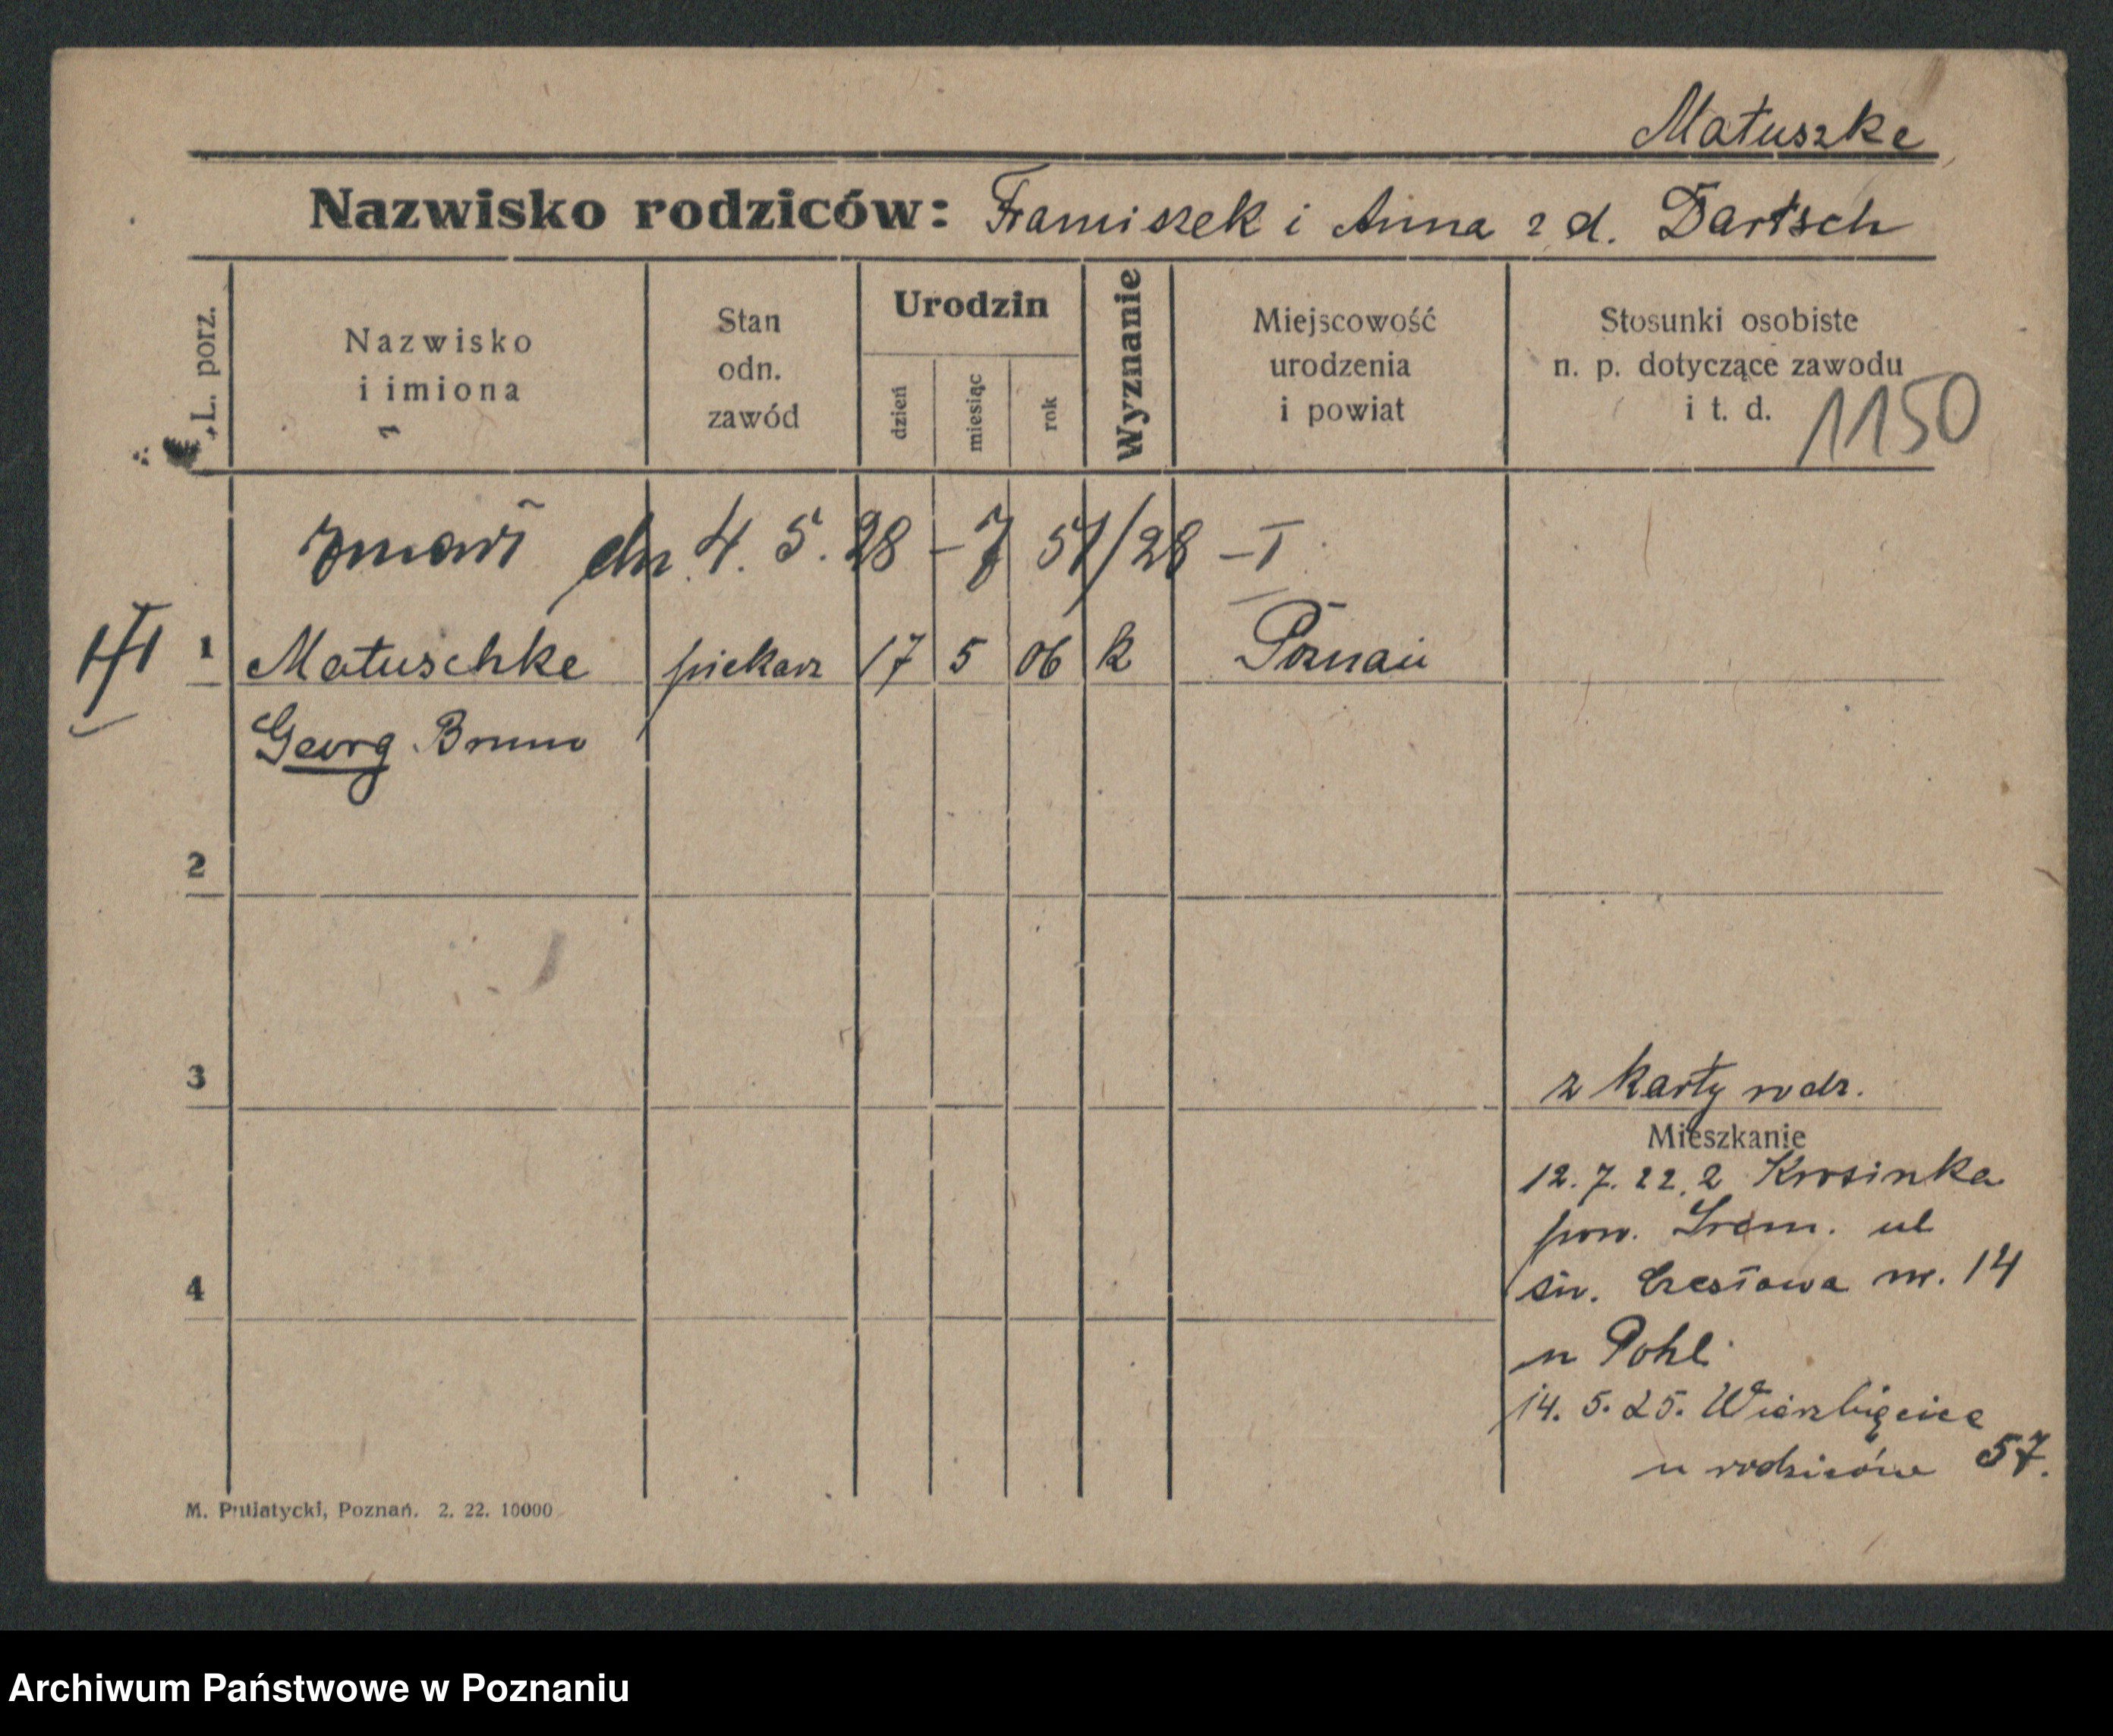 Matuszke
Nazwisko rodziców: Franciszek i Anna z d. Dartsch
L. porz.
Nazwisko
i imiona
Stan
odn.
zawód
Urodzin
dzień
miesiąc
rok
Wyznanie
Miejscowość
urodzenia
i powiat
Stosunki osobiste
n. p. dotyczące zawodu
i t. d.
1150
zmarł dn. 4. 5. 28 - 7 51/28 - I
1 Matuschke piekarz 17 5 06 k Poznań
Georg Bruno
2
3
z karty rodz.
Mieszkanie
12. 7. 22. z Krosinka
pow. Śrem. ul
4
św. Czesława nr. 14
u Pohl
14. 5. 25. Wierzbięcice
u rodziców 57.
M. Putiatycki, Poznań. 2. 22. 10000
Archiwum Państwowe w Poznaniu